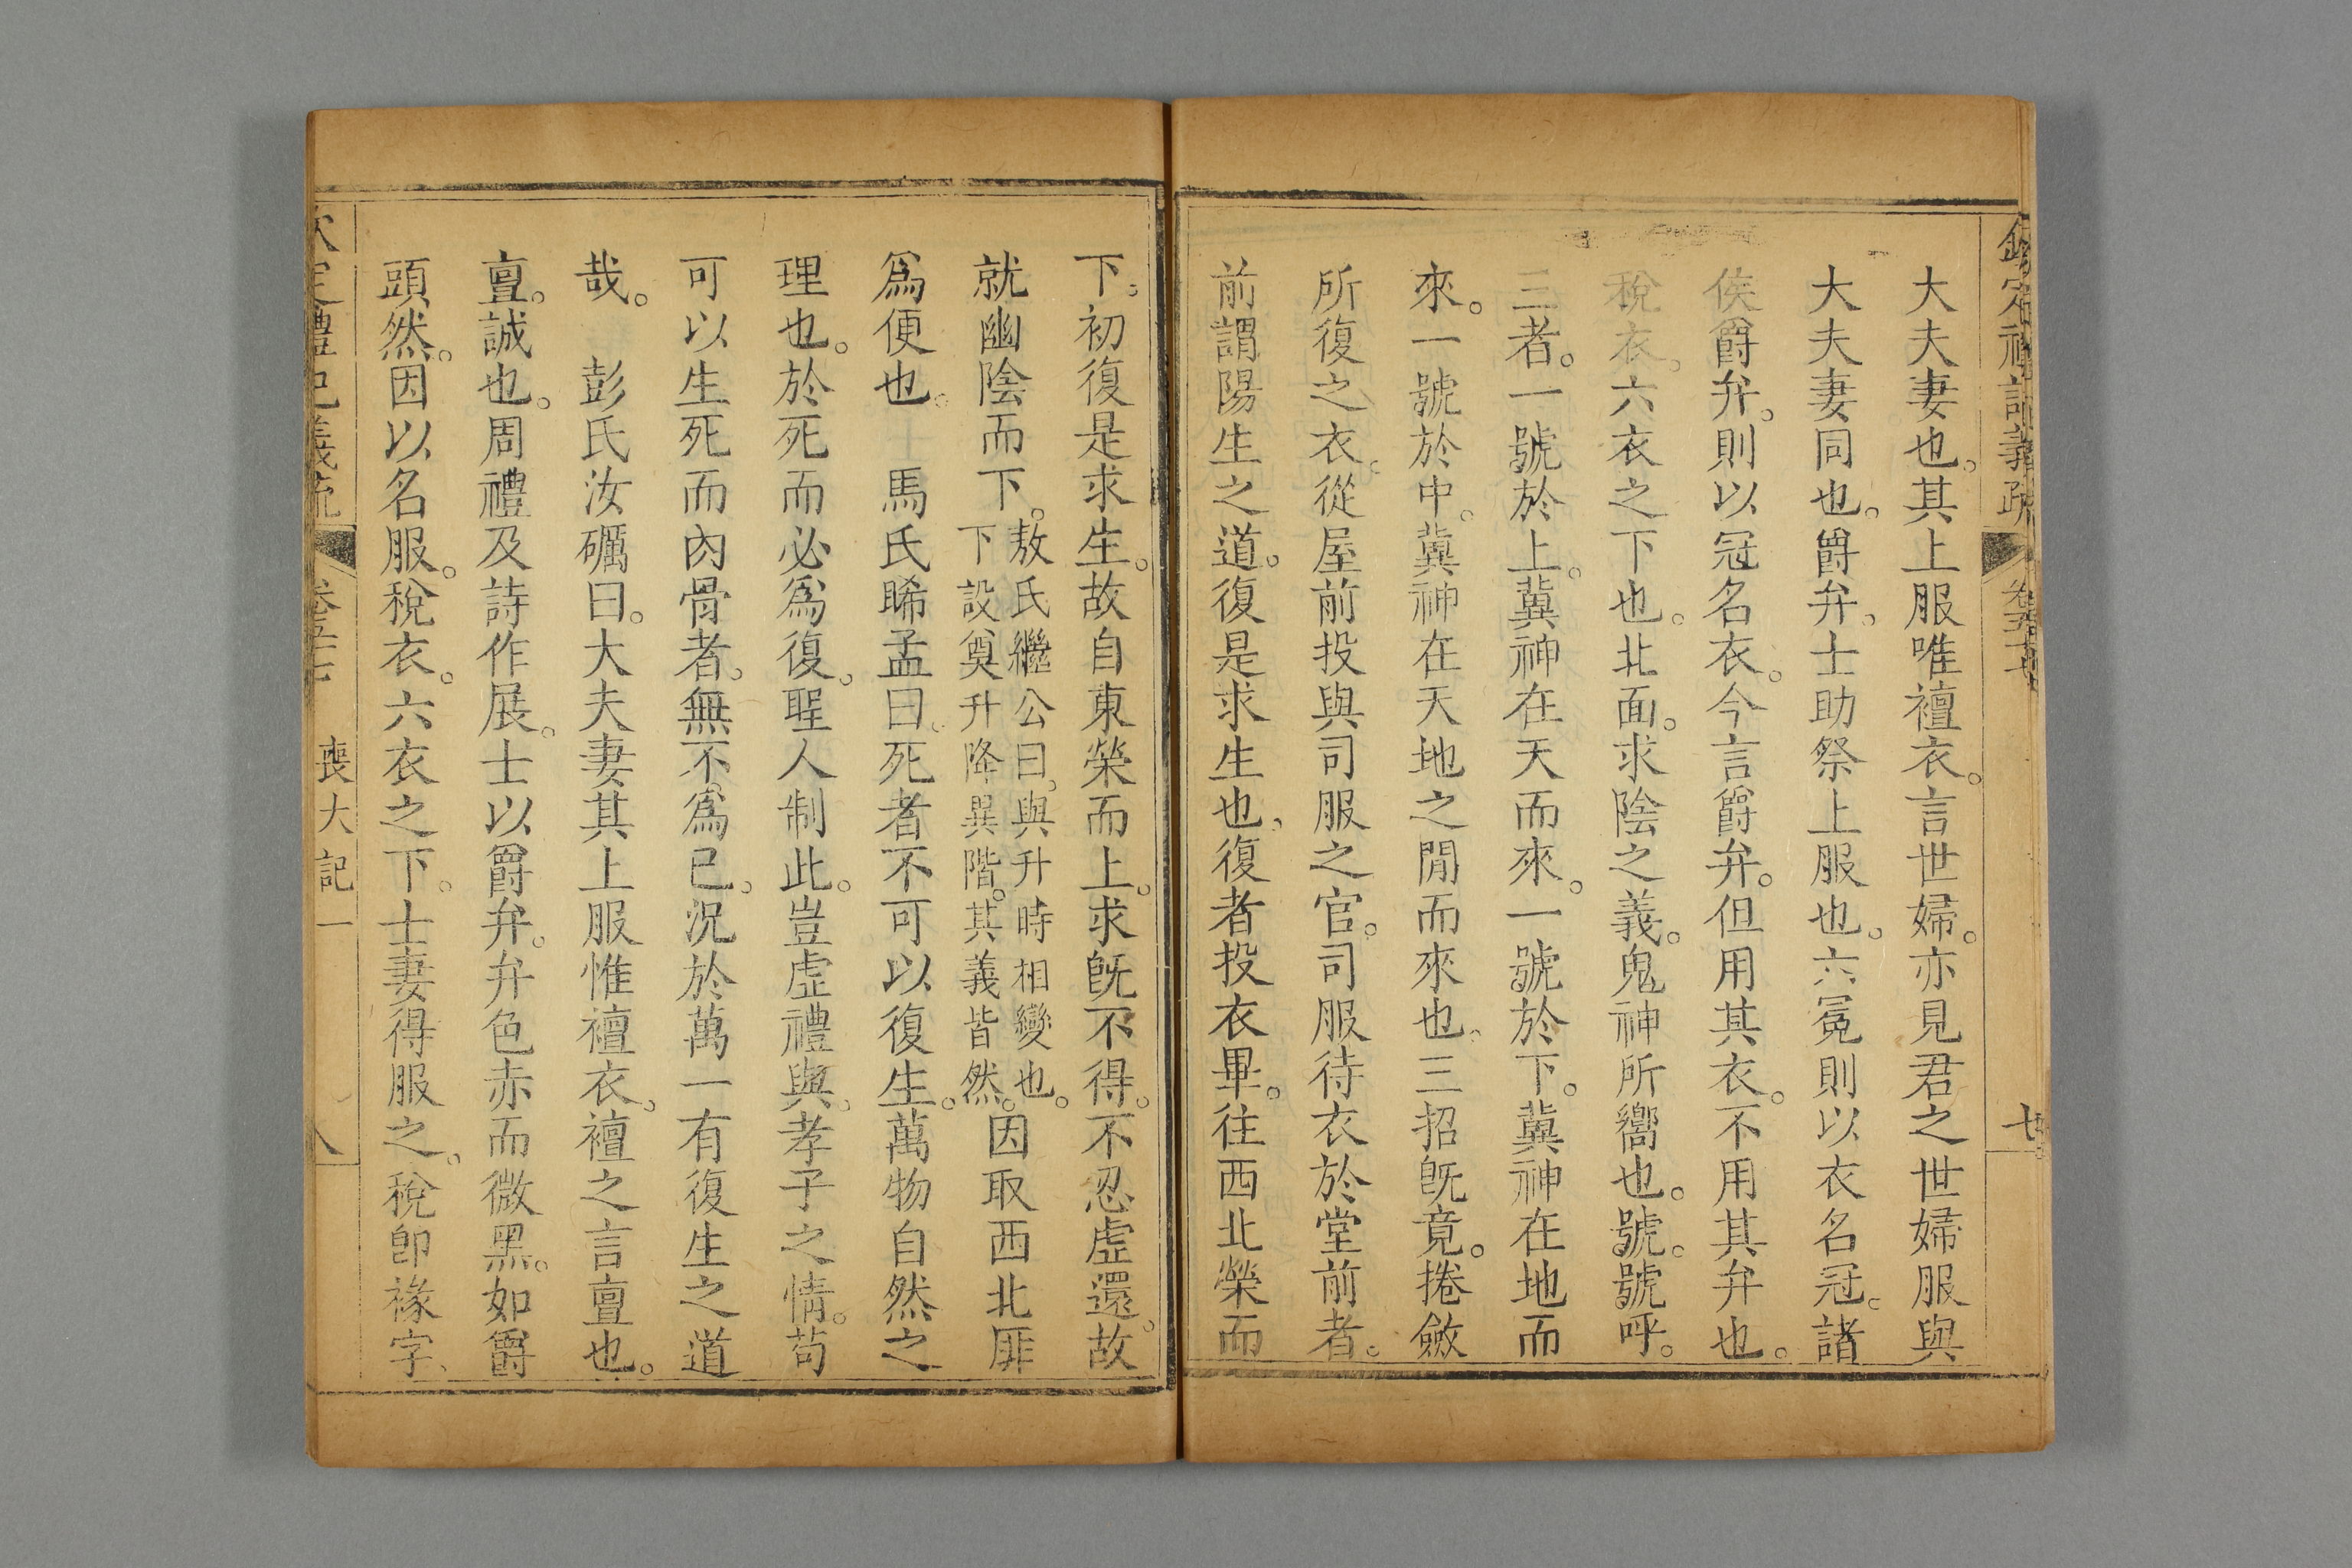 欽定禮記義疏 卷五十七 七
大夫妻也。其上服唯襢衣。言世婦。亦見君之世婦服與
大夫妻同也。爵弁。士助祭上服也。六冕則以衣名冠。諸
侯爵弁。則以冠名衣。今言爵弁。但用其衣。不用其弁也。
稅衣。六衣之下也。北面。求陰之義。鬼神所嚮也。號。號呼。
三者。一號於上。冀神在天而來。一號於下。冀神在地而
來。一號於中。冀神在天地之閒而來也。三招旣竟。捲斂
所復之衣。從屋前投與司服之官。司服待衣於堂前者。
前謂陽生之道。復是求生也。復者投衣畢。往西北榮而
下。初復是求生。故自東榮而上。求旣不得。不忍虛還。故
就幽陰而下。
敖氏繼公曰。與升時相變也。
下設奠升降異階。其義皆然。
因取西北厞
爲便也。 馬氏睎孟曰。死者不可以復生。萬物自然之
理也。於死而必爲復。聖人制此。豈虛禮與。孝子之情。苟
可以生死而肉骨者。無不爲已。況於萬一有復生之道
哉。 彭氏汝礪曰。大夫妻其上服惟襢衣。襢之言亶也。
亶。誠也。周禮及詩作展。士以爵弁。弁色赤而微黑。如爵
頭然。因以名服。稅衣。六衣之下。士妻得服之。稅卽褖字。
欽定禮記義疏 卷五十七 喪大記一 八